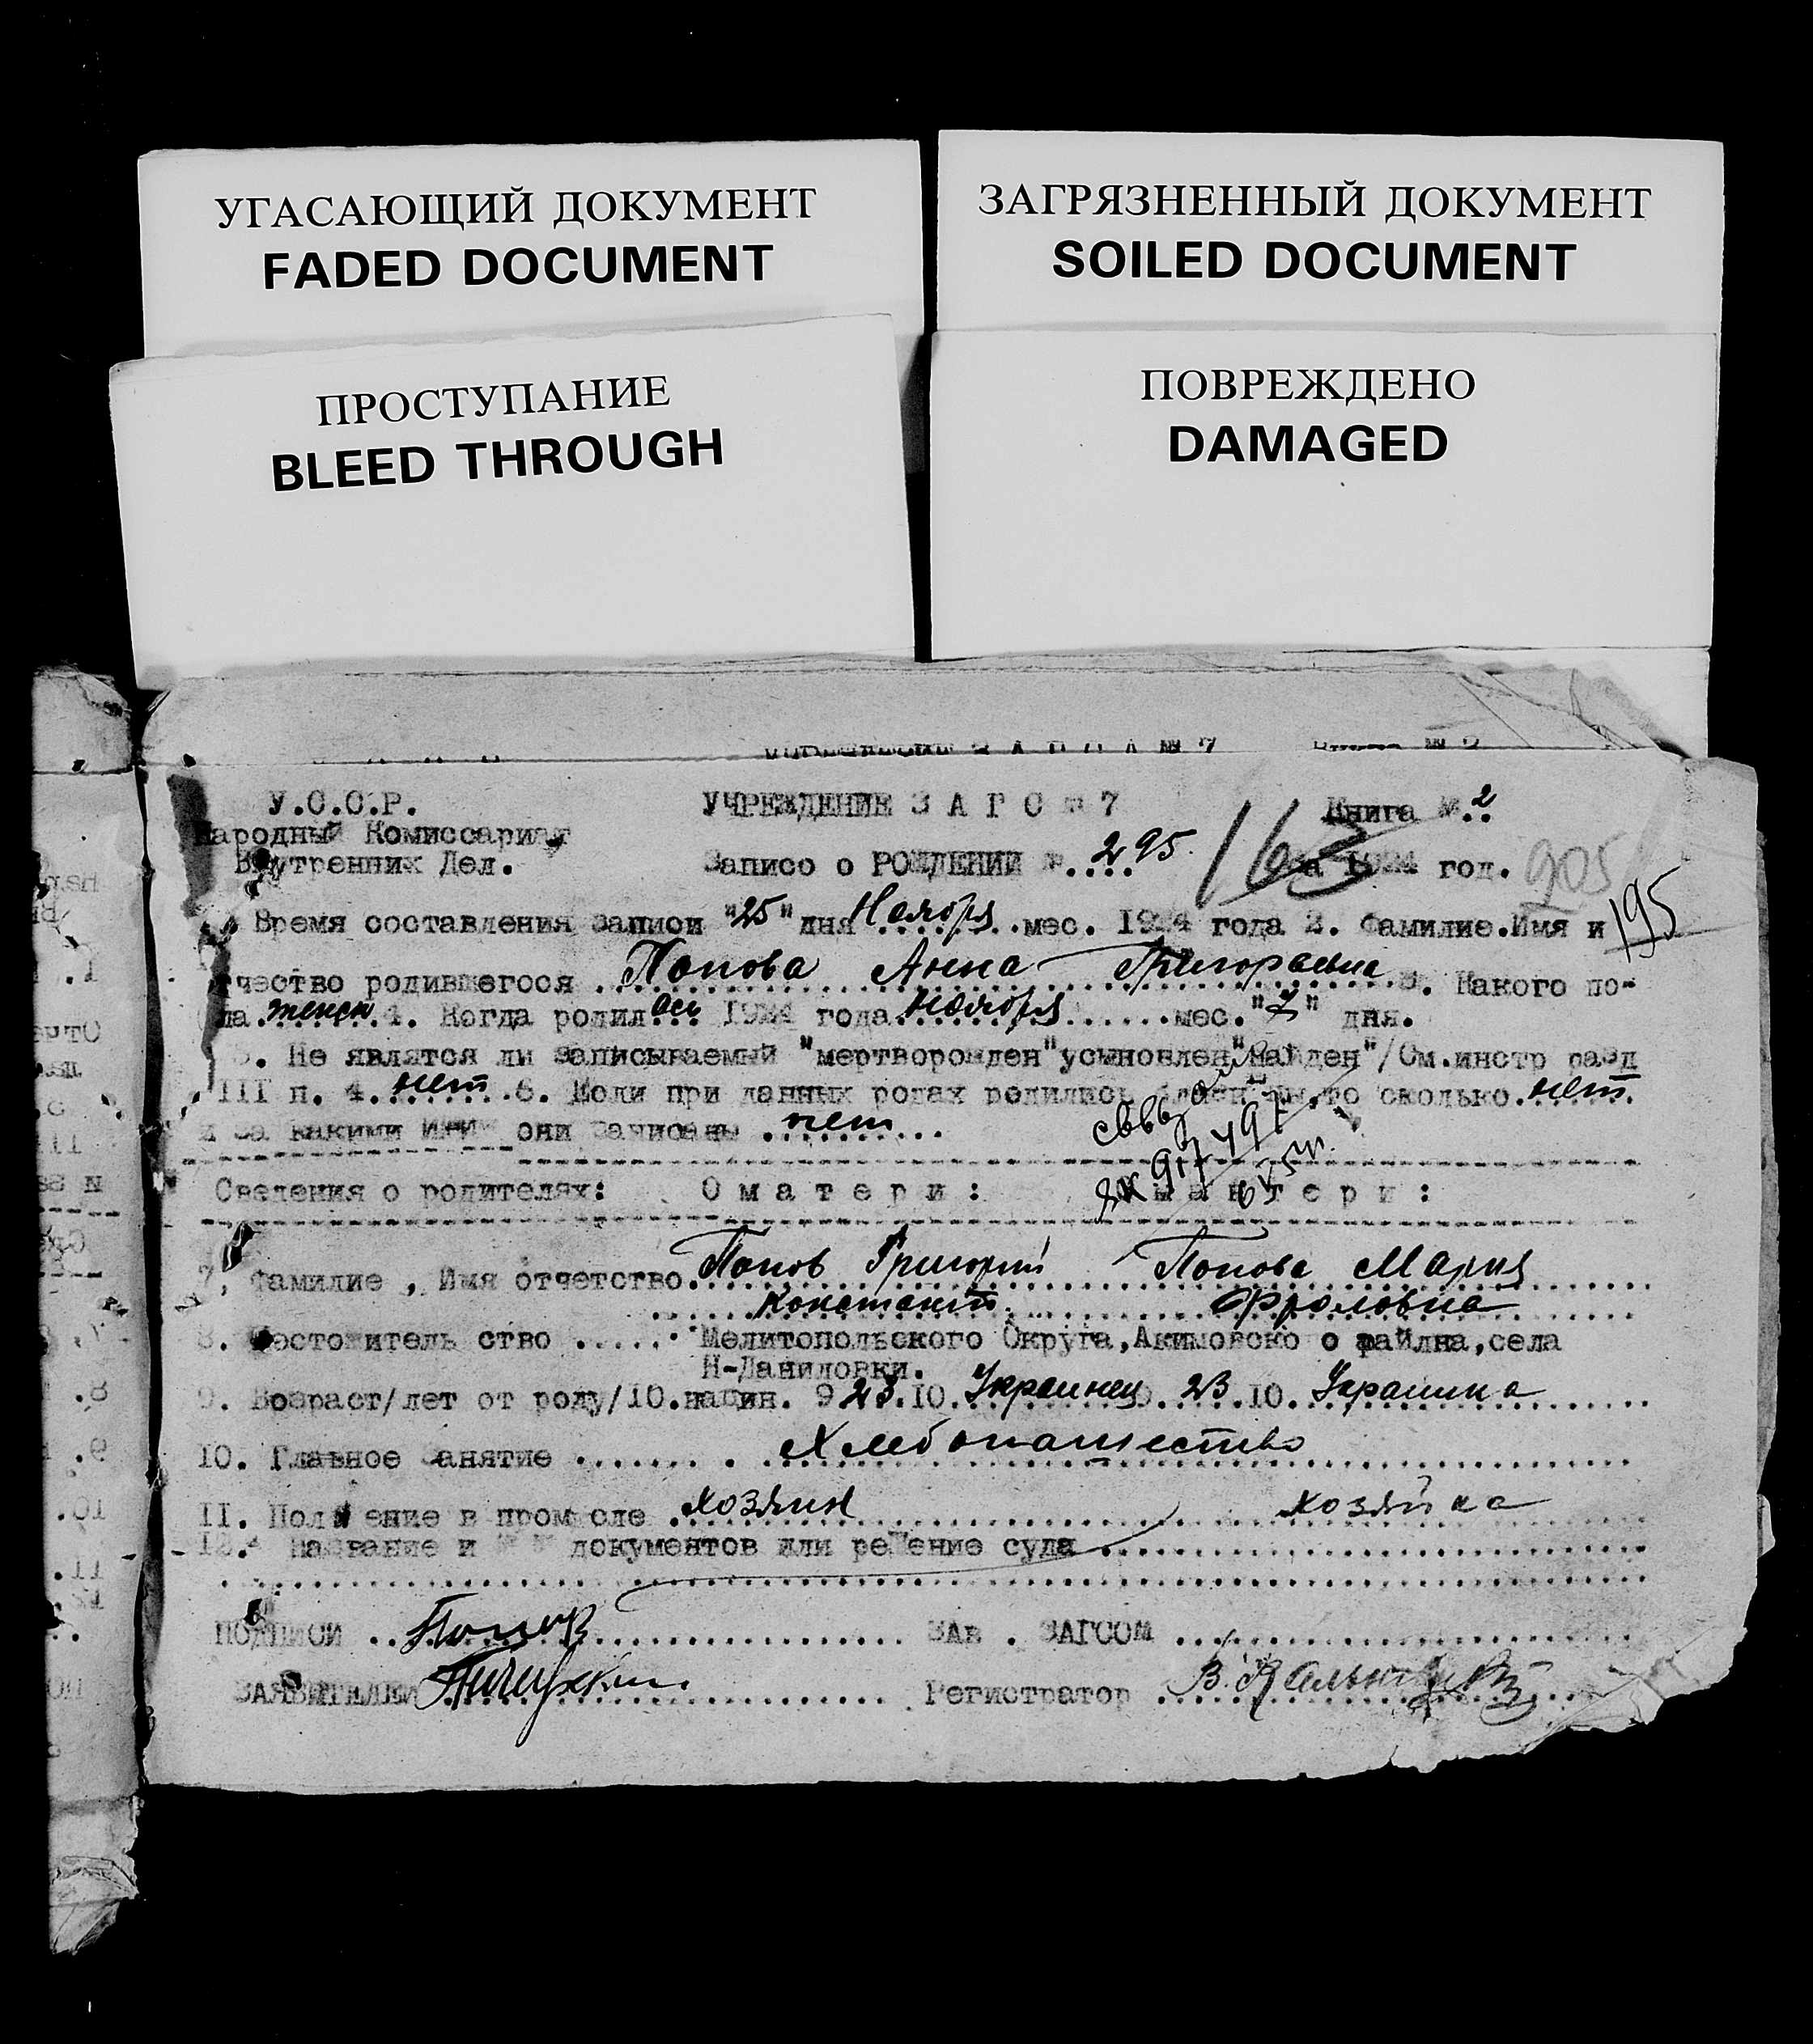 УГАСАЮЩИЙ ДОКУМЕНТ
FADED DOCUMENT
ЗАГРЯЗНЕННЫЙ ДОКУМЕНТ
SOILED DOCUMENT
ПРОСТУПАНИЕ
BLEED THROUGH
ПОВРЕЖДЕНО
DAMAGED
У.С.С.Р. УЧРЕЖДЕНИЕ З А Г С № 7 Книга № 2
Народный Комиссариат
Внутренних Дел. Записо о РОЖДЕНИИ №. 295 163 за 1924 год. 905
Время составления записи "25" дня Ноября мес. 1924 года 2. Фамилие.Имя и 195
отчество родившегося Попова Анна Григорьевна 3. Какого по-
ла женск 4. Когда родил ась 1924 года ноября мес. "7" дня.
5. Не являтся ли записываемый "мертворожден"усыновлен"найден"/См.инстр разд
III п. 4. нет 6. Если при данных родах родились то сколько нет
и за какими они записаны нет
Сведения о родителях: О м а т е р и : м а т е р и :
7. Фамилие , Имя отчетство Попов Григорий Попова Мария
Констант. Фроловна
8. Местожитель ство ..... Мелитопольского Округа,Акимовско о района,села
Н-Даниловки.
9. Возраст/лет от роду/10.национ. 9 23.10. Украинец 9. 23.10. Украинка
10. Главное занятие ....... Хлебопашество
II. Поло ение в пром сле хозяин хозяйка
12. Название и № № документов или решение суда
ПОДПИСИ Попов ЗАВ . ЗАГСОМ
ЗАЯВИТЕЛЕЙ Регистратор